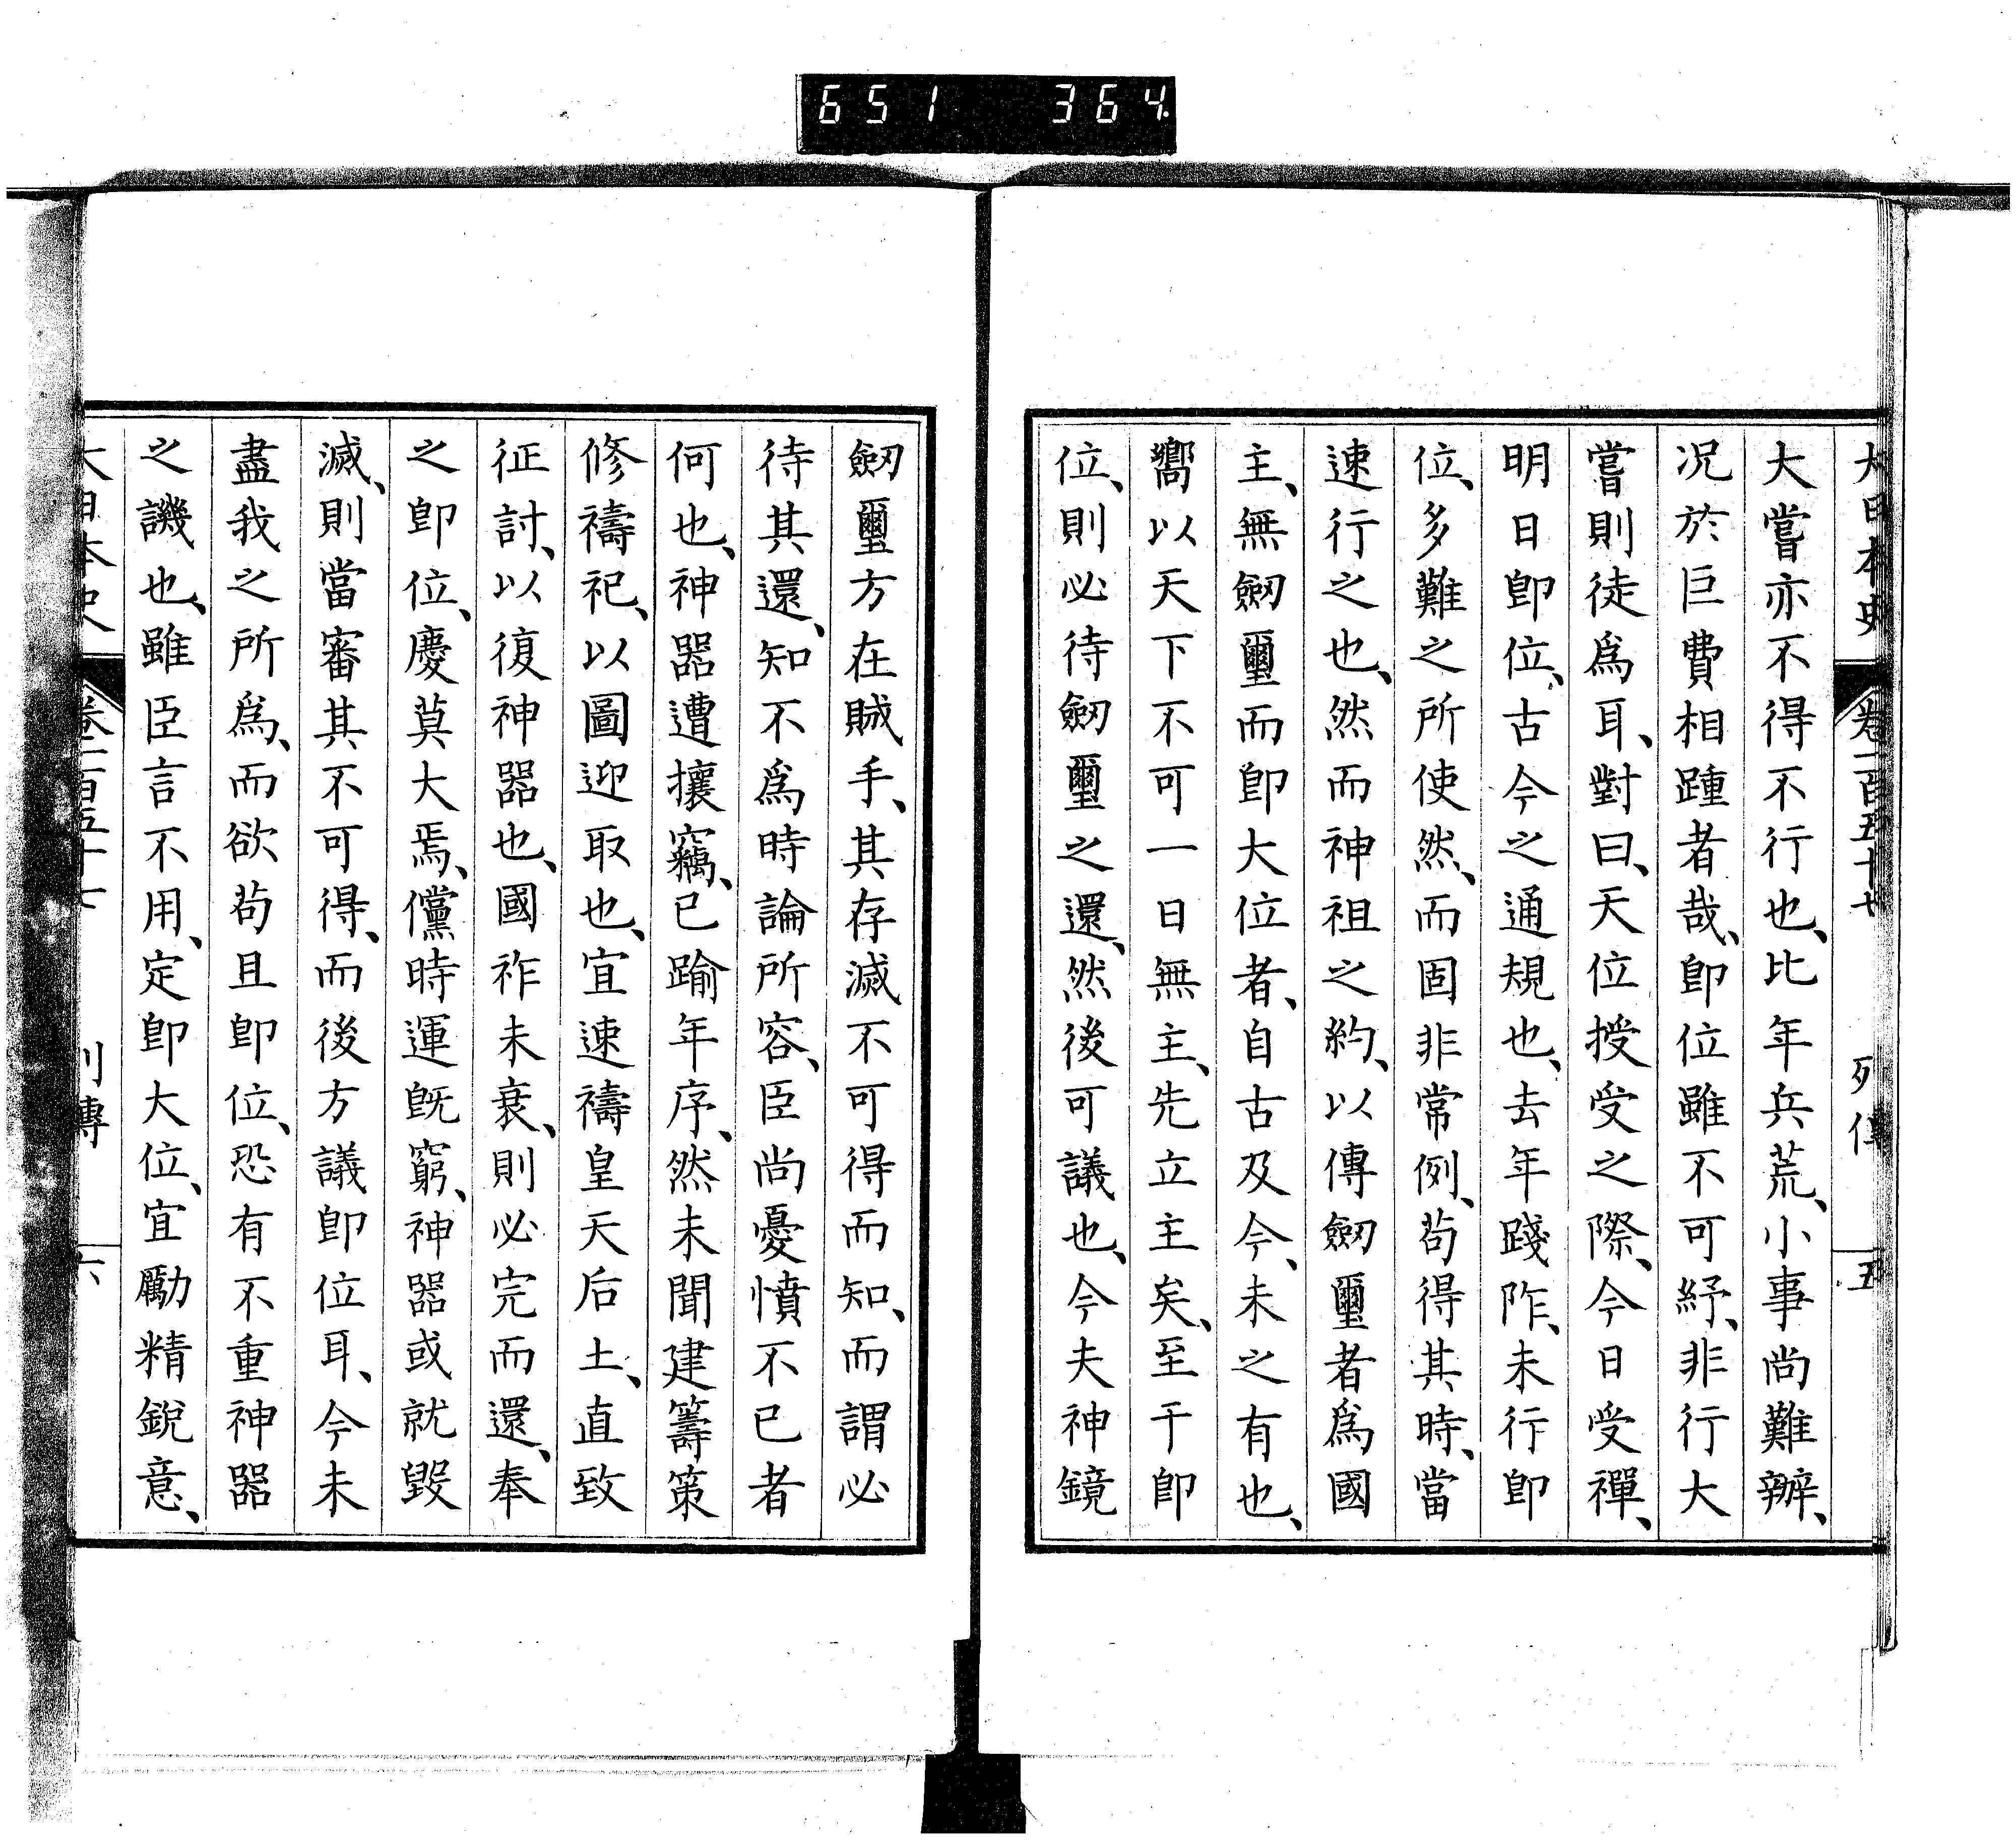 651 364
大日本史 卷一百五十七 列傳 五
大嘗亦不得不行也、比年兵荒、小事尚難辦、
况於巨費相踵者哉、卽位雖不可紓、非行大
嘗則徒爲耳、對曰、天位授受之際、今日受禪、
明日卽位、古今之通規也、去年踐阼、未行卽
位、多難之所使然、而固非常例、茍得其時、當
速行之也、然而神祖之約、以傳劒璽者爲國
主、無劒璽而卽大位者、自古及今、未之有也、
嚮以天下不可一日無主、先立主矣、至于卽
位、則必待劒璽之還、然後可議也、今夫神鏡
劒璽方在賊手、其存滅不可得而知、而謂必
待其還、知不爲時論所容、臣尚憂憤不已者
何也、神器遭攘竊、已踰年序、然未聞建籌策
修禱祀、以圖迎取也、宜速禱皇天后土、直致
征討、以復神器也、國祚未衰、則必完而還、奉
之卽位、慶莫大焉、儻時運旣窮、神器或就毀
滅、則當審其不可得、而後方議卽位耳、今未
盡我之所爲、而欲茍且卽位、恐有不重神器
之譏也、雖臣言不用、定卽大位、宜勵精銳意、
大日本史 卷一百五十七 列傳 六